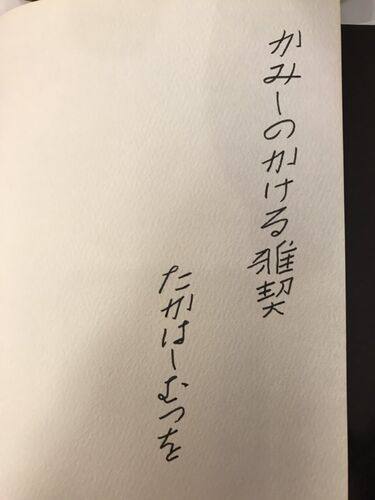 かみーのかける雅契
たかはーむつを